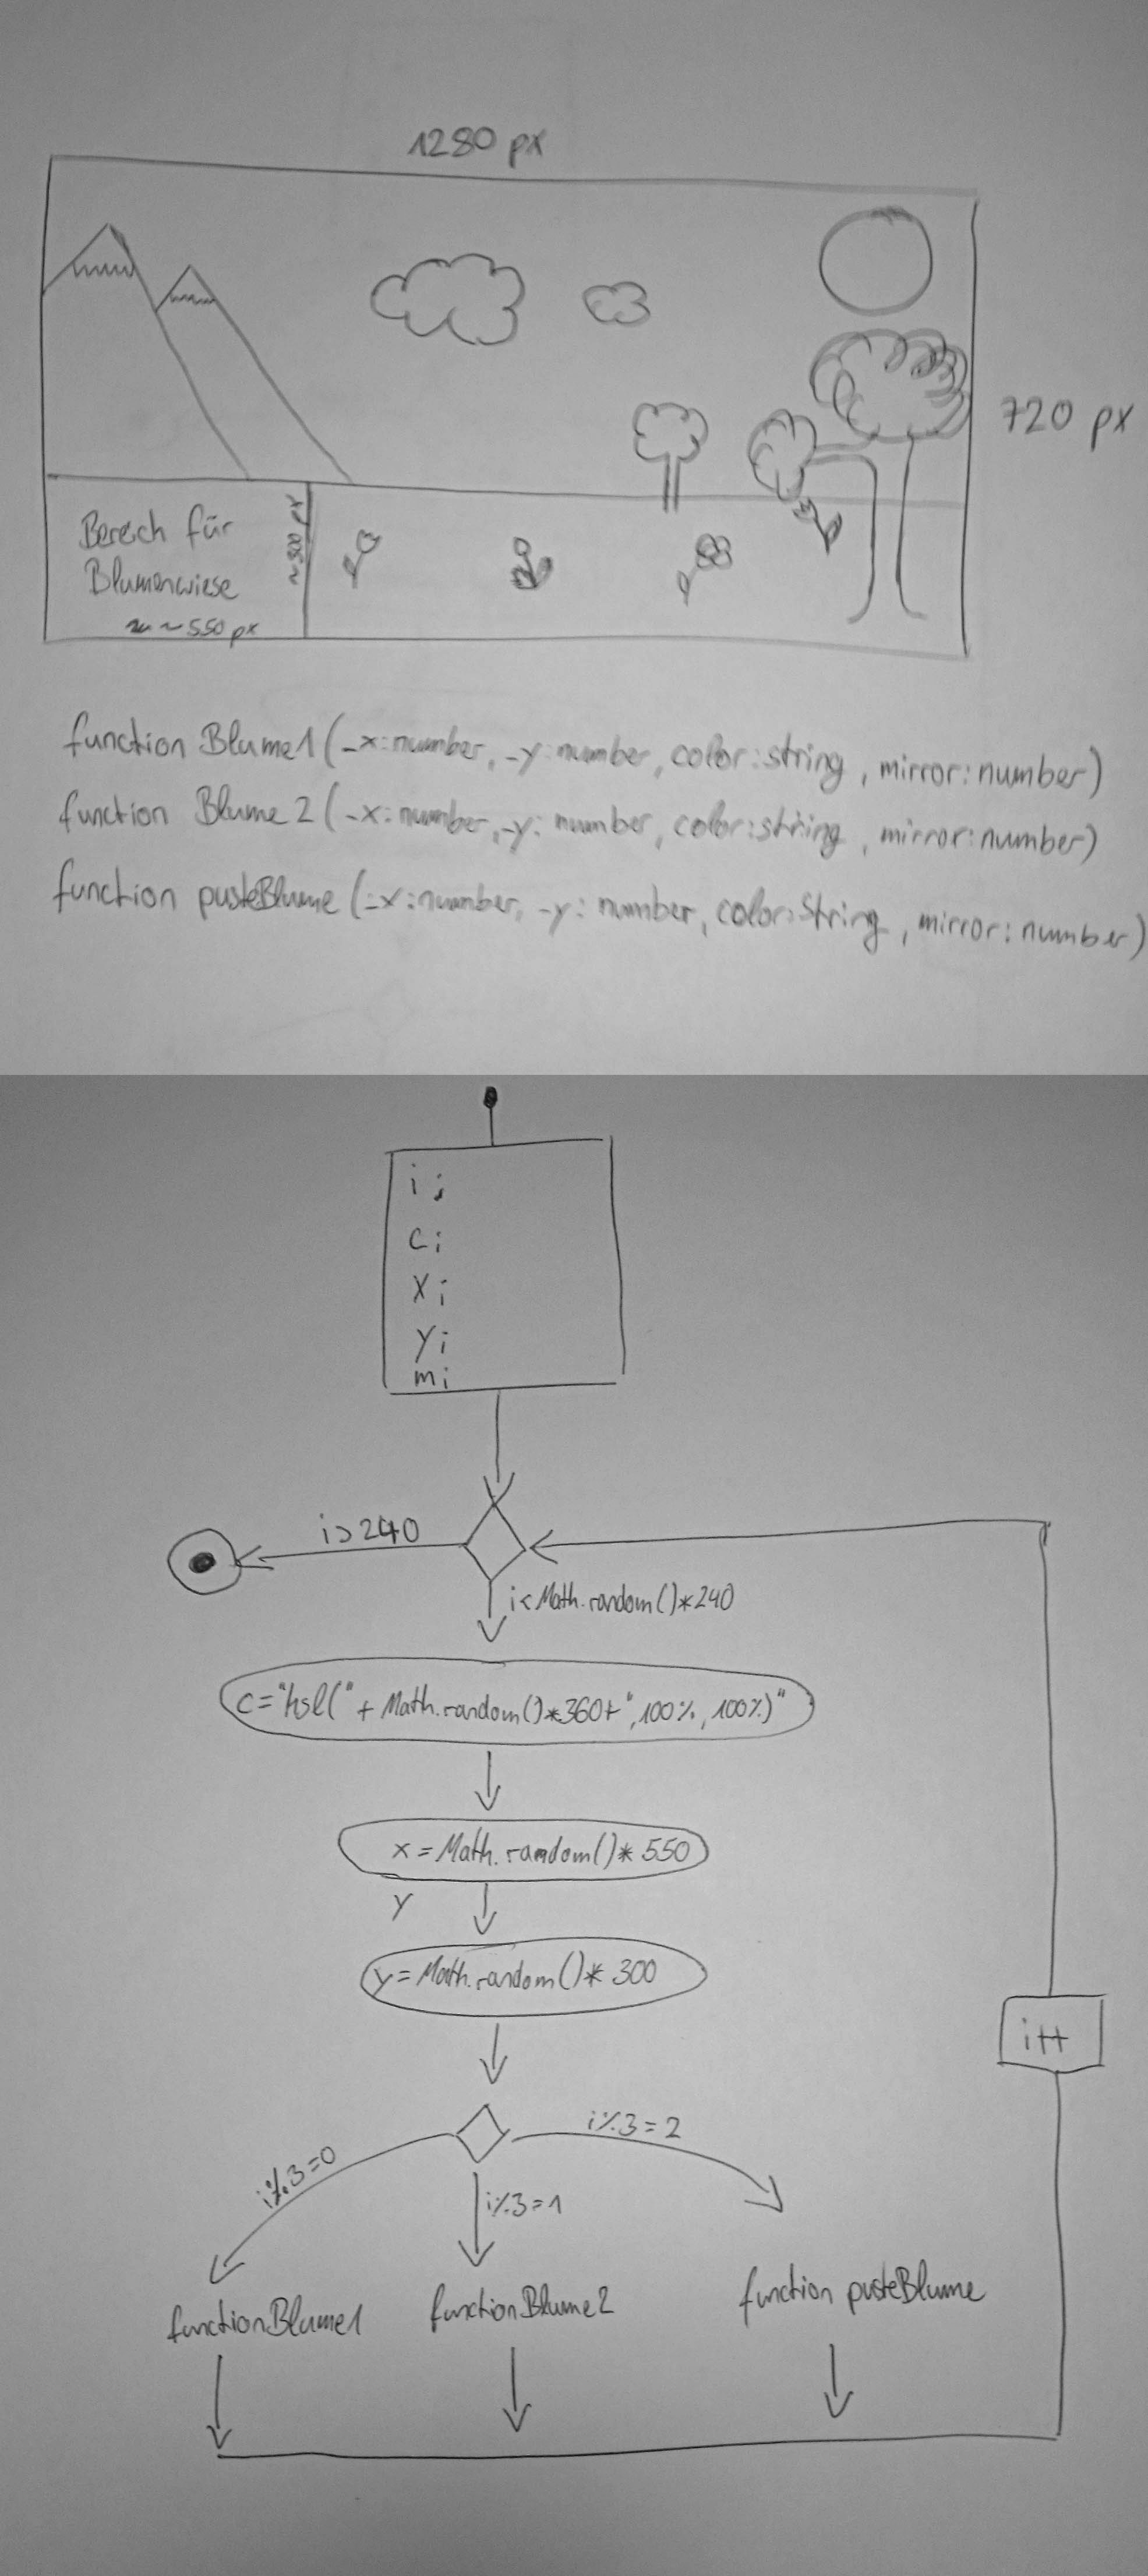 1280 px
720 px
Bereich für
Blumenwiese
~ 550 px
~ 300 px
function Blume1 (_x:number, _y:number, color:string, mirror:number)
function Blume 2 (_x:number, _y:number, color:string, mirror:number)
function pusteBlume (_x:number, _y:number, color:String, mirror:number)
i;
c;
x;
y;
m;
i>240
i<Math.random()*240
c="hsl("+Math.random()*360+",100%,100%)"
x=Math.random()*550
y
y=Math.random()*300
i++
i%3=2
i%3=0
i%3=1
function Blume1
function Blume2
function pusteBlume